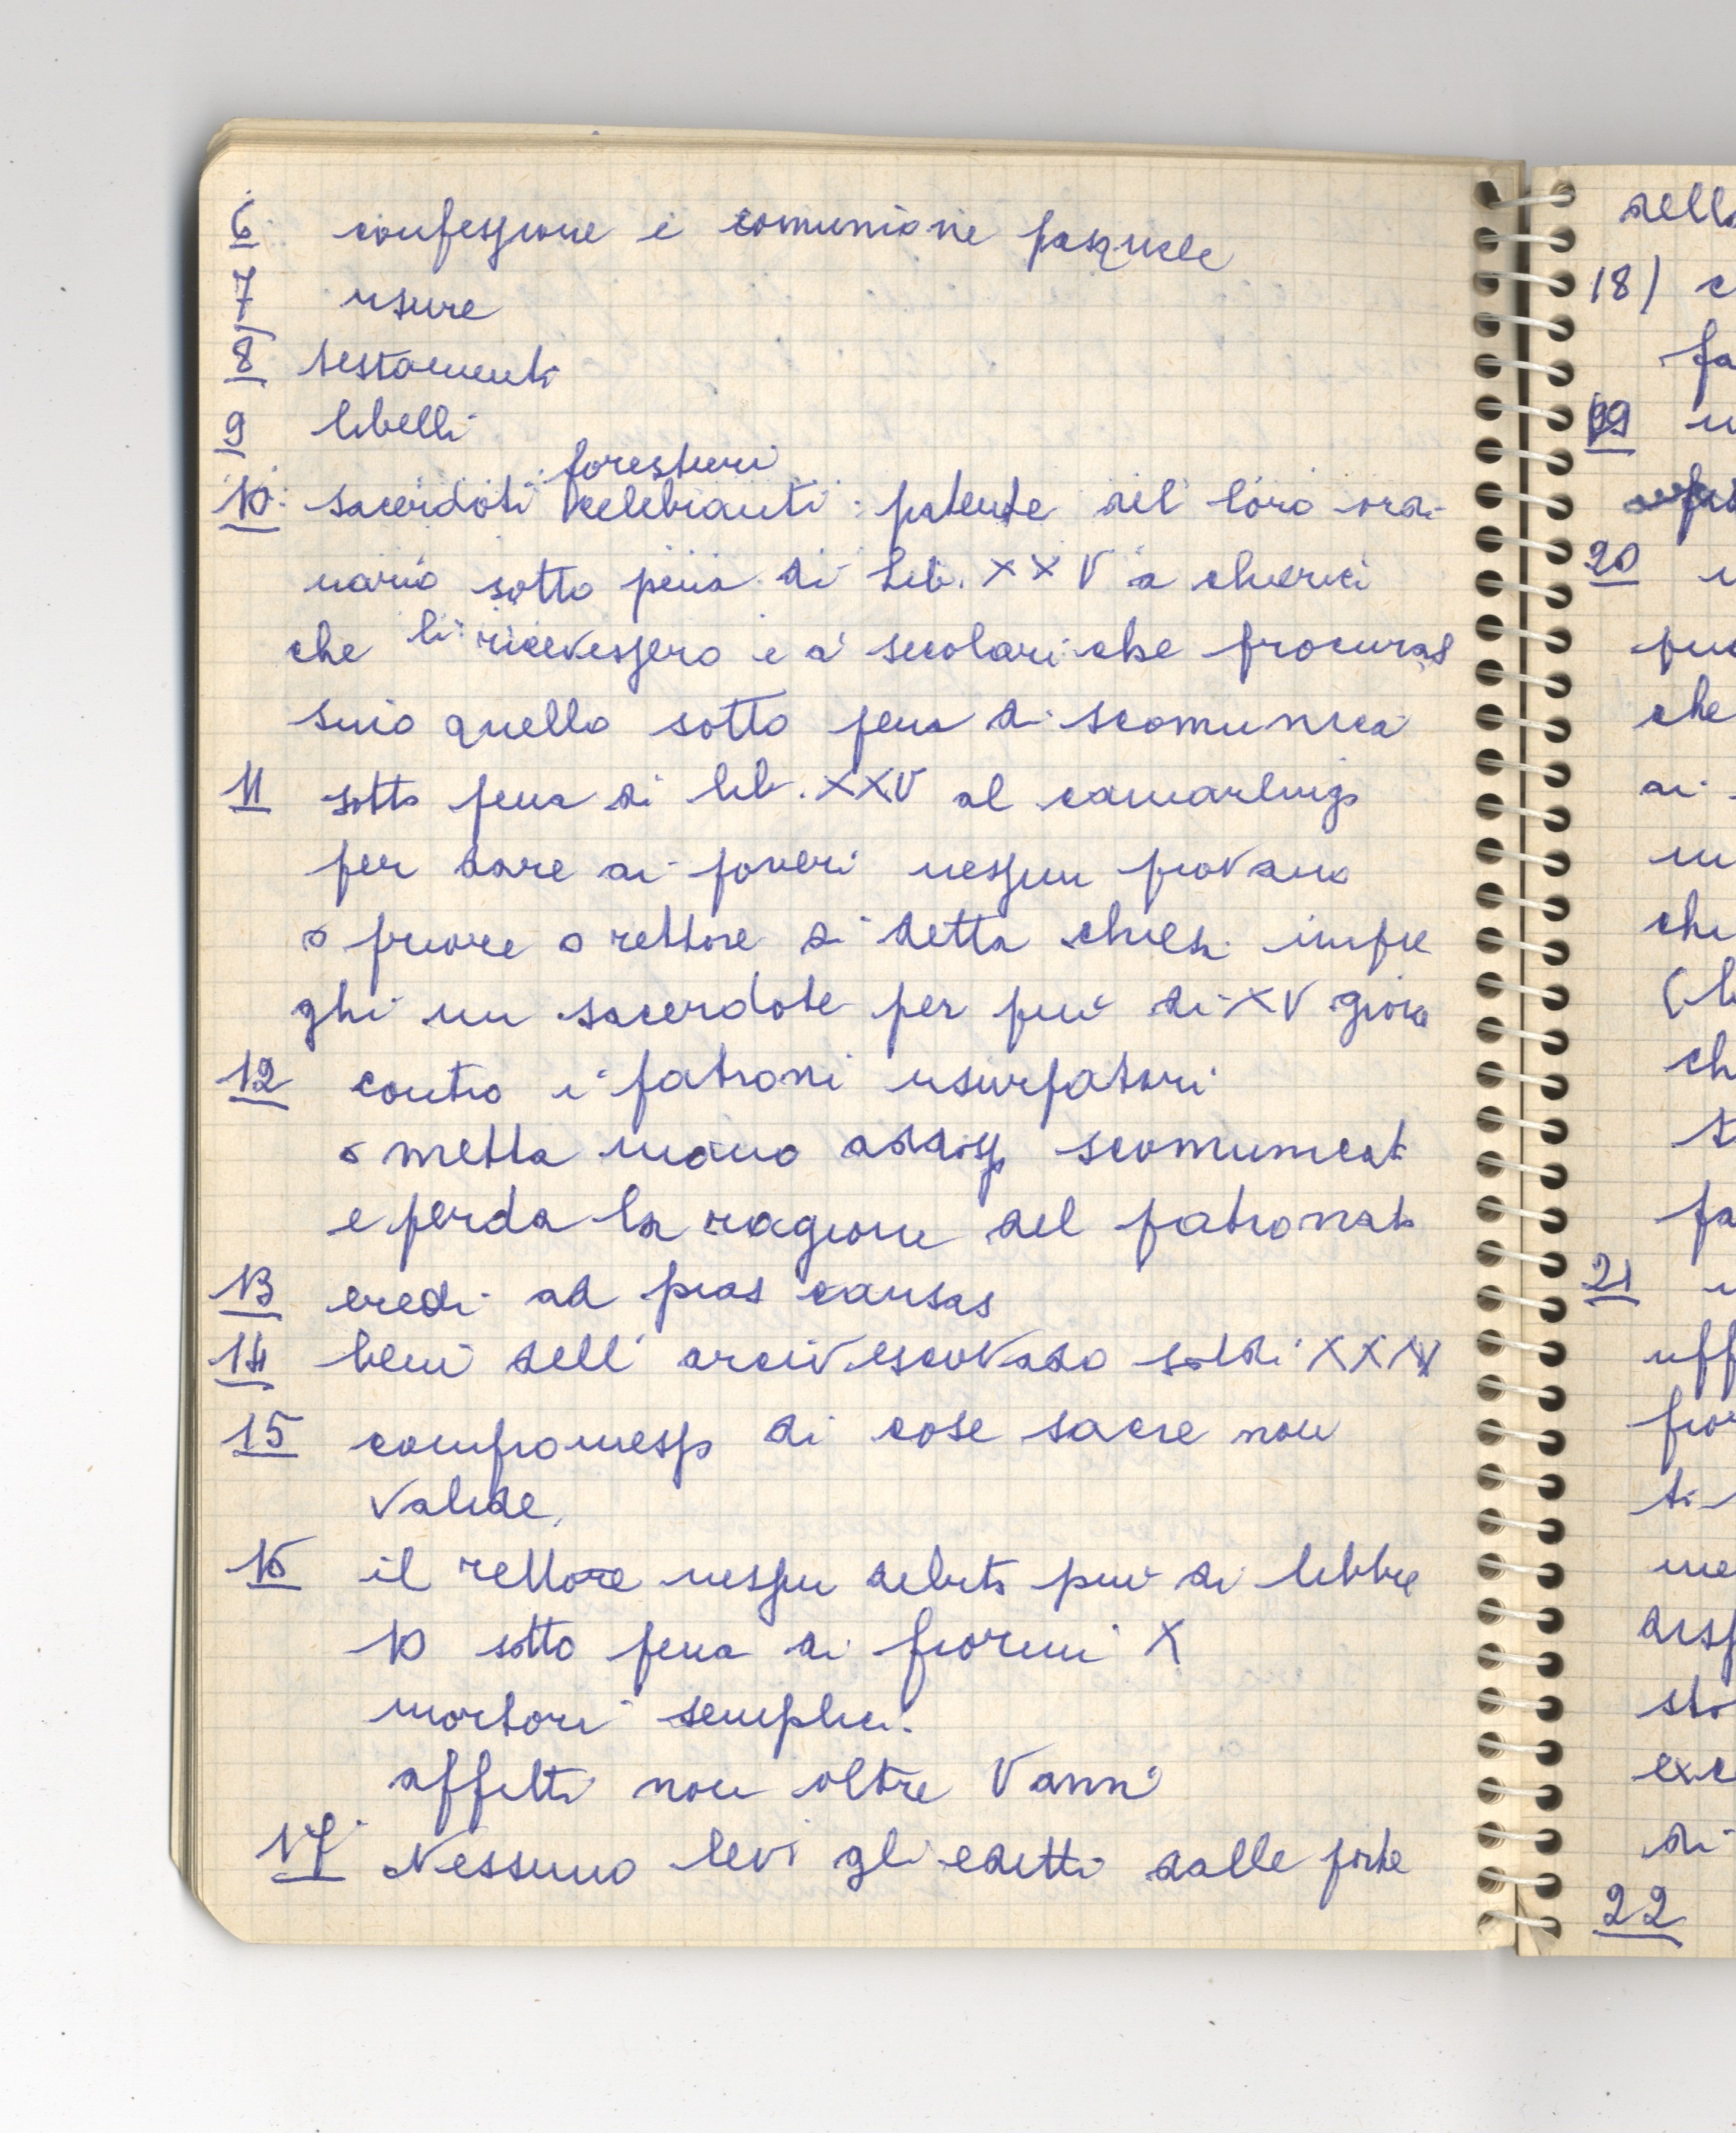 6 confessione e comunione pasquale
7 usure
8) testamenti
9 libelli
forestieri
10 sacerdoti celebranti: patente del loro ordi
nario sotto pena di Lib. XXV a chierici
che li ricevessero e a secolari che procuras
sino quello sotto pena di scomunica
11 sotto pena di lib. XXV al camarlingo
per dare ai poveri nessun piovano
o priore o rettore di detta chiesa impie
ghi un sacerdote per più di XV giorni
12 contro i patroni usurpatori
o metta mano scomunicato
e perda la ragione del patronato
13 eredi ad pias causas
14 beni dell'arcivescovado soldi
15 compromesso di cose sacre non
valide.
16 il rettore nessun debito più di libbre
10 sotto pena di fiorini X
mortori semplici.
affitti non oltre V anni
17 Nessuno levi gli editti dalle porte
dell
18) c
fa
19
20
che
ai
che
ch
fa
21
uff
fior
ti
me
disp
sto
exc
di
22